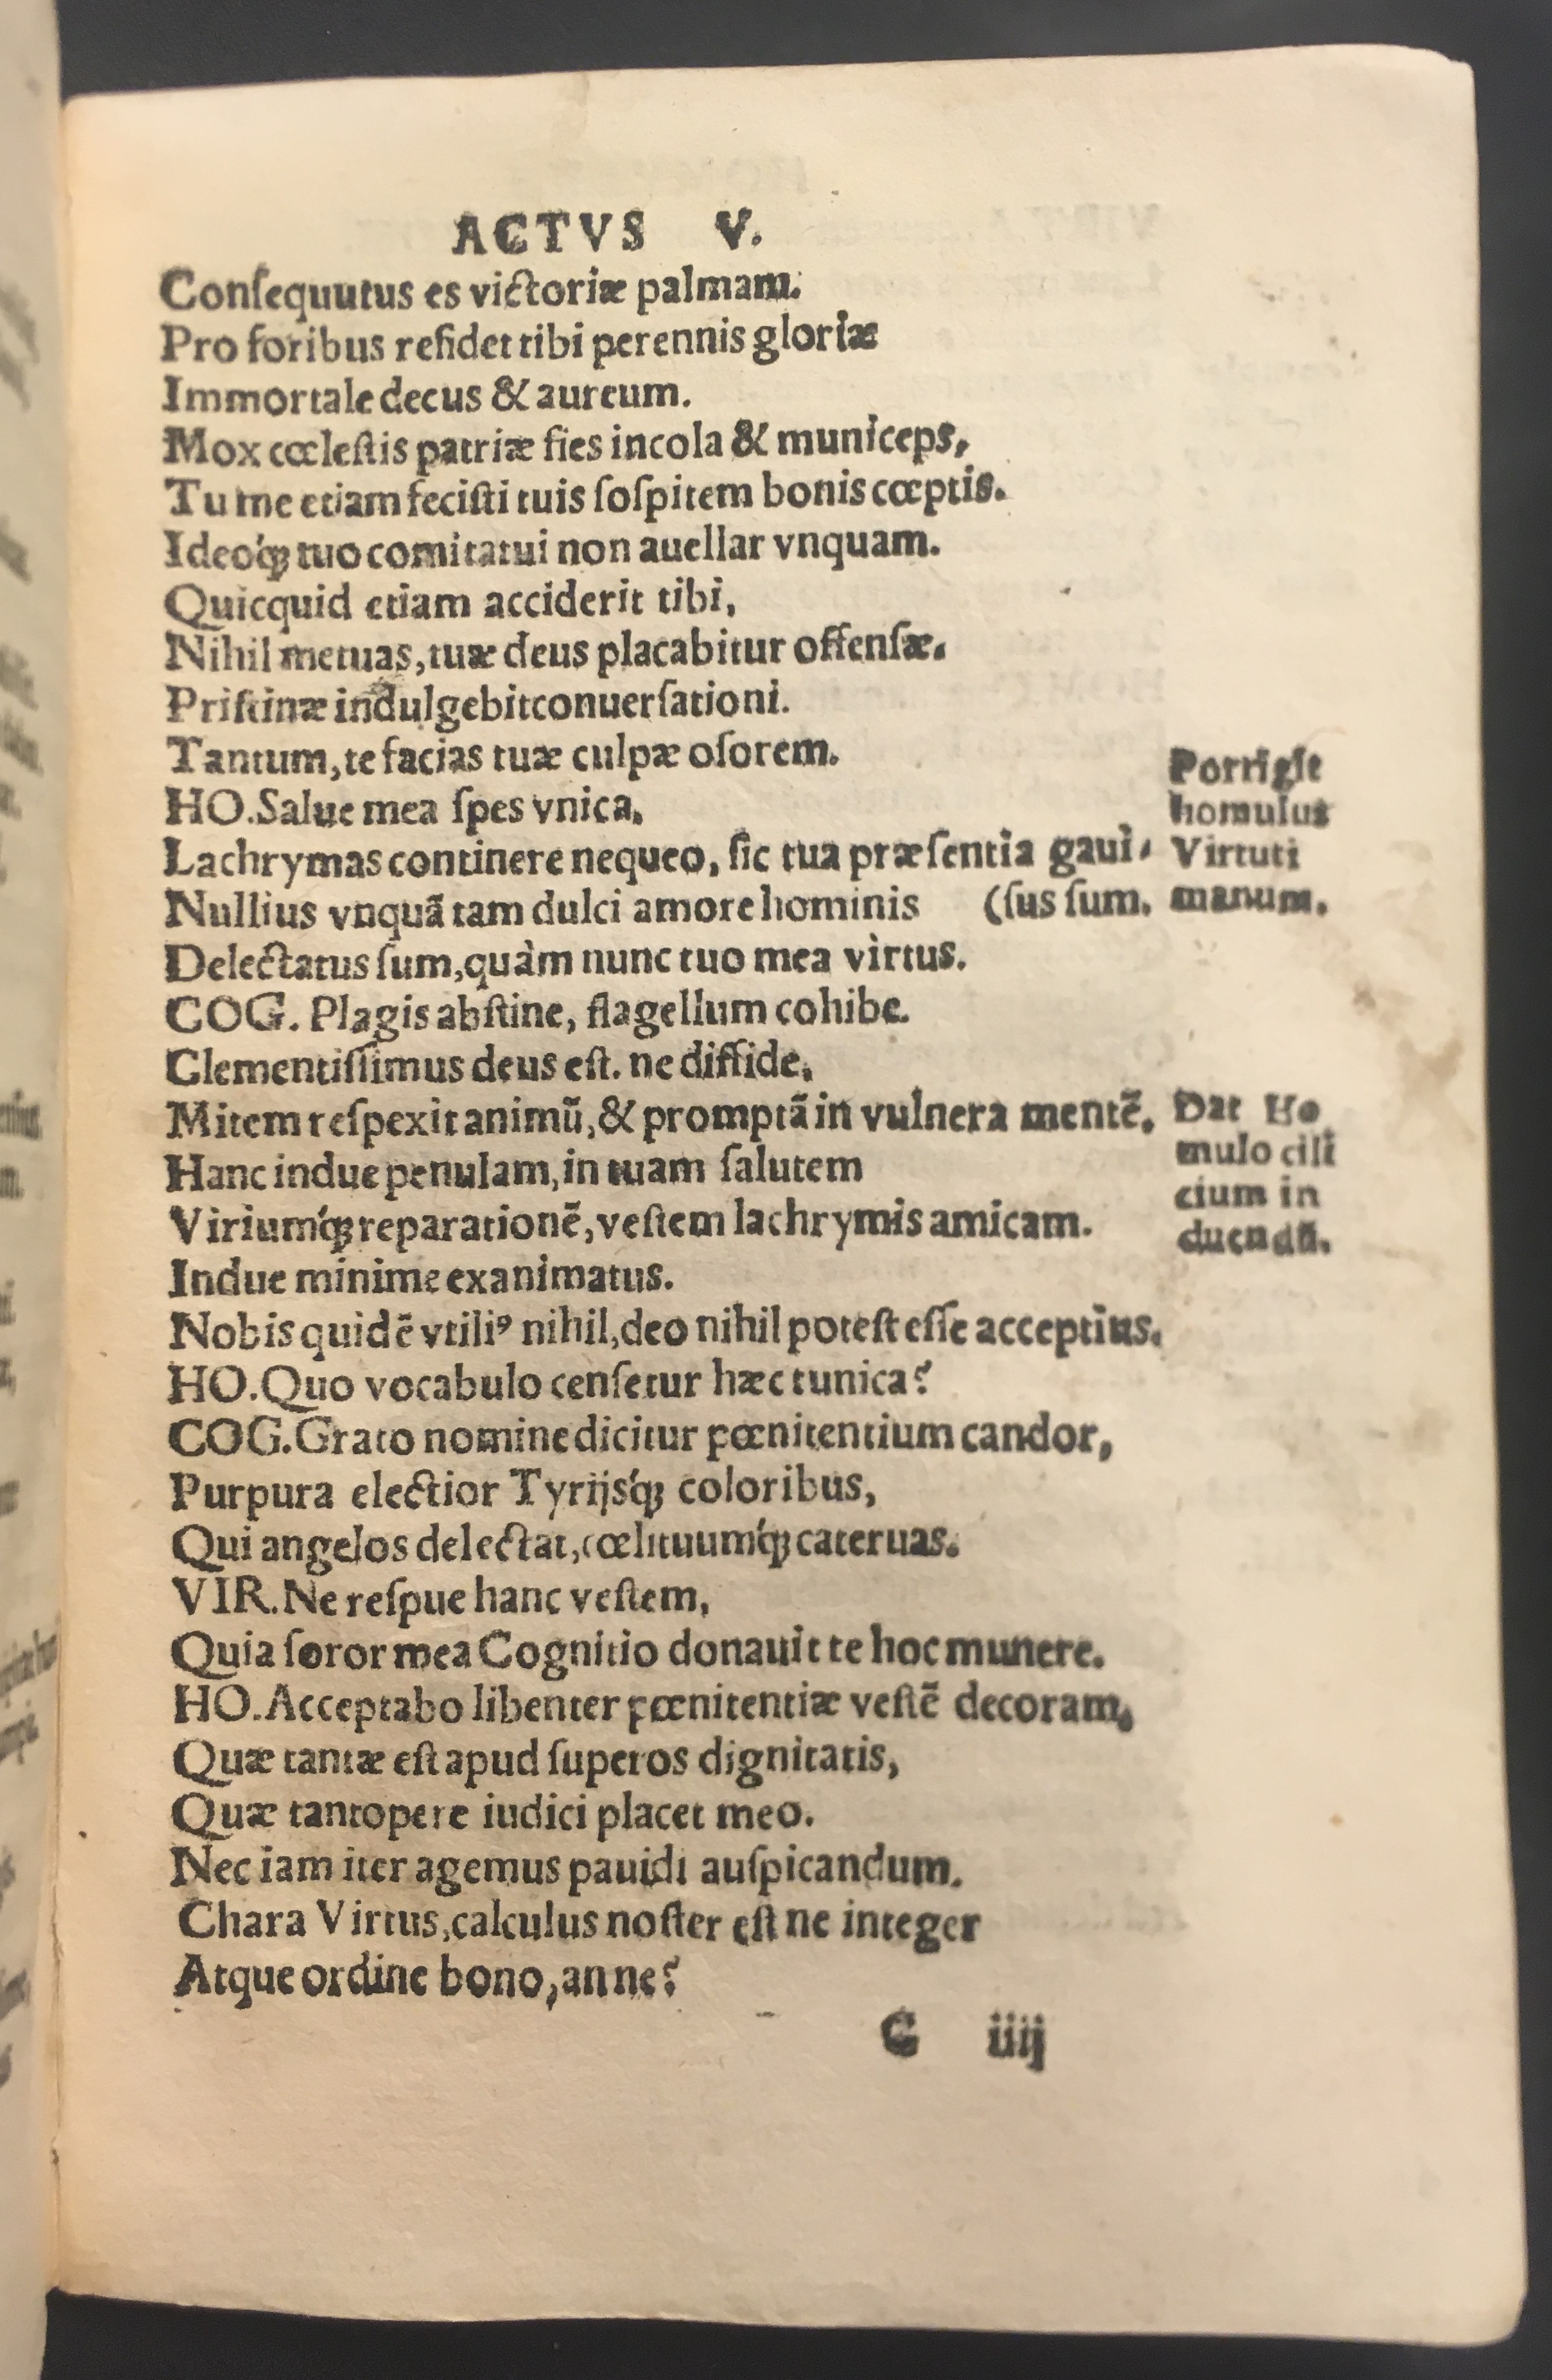 ACTVS V.
Conſequutus es victoriæ palmam.
Pro foribus reſidet tibi perennis gloriæ
Immortale decus & aureum.
Mox cœleſtis patriæ fies incola & municeps,
Tu me etiam feciſti tuis ſoſpitem bonis cœptis.
Ideoq́ꝫ tuo comitatui non auellar vnquam.
Quicquid etiam acciderit tibi,
Nihil metuas, tuæ deus placabitur offenſæ.
Priſtinæ indulgebit conuerſationi.
Tantum, te facias tuæ culpæ oſorem.
HO. Salue mea ſpes vnica,
Lachrymas continere nequeo, ſic tua præſentia gaui-
Nullius vnquā tam dulci amore hominis (ſus ſum.
Delectatus ſum, quàm nunc tuo mea virtus.
Porrigit
homulus
Virtuti
manum.
COG. Plagis abſtine, flagellum cohibe.
Clementiſſimus deus eſt. ne diffide,
Mitem reſpexit animū, & promptā in vulnera mentē.
Hanc indue penulam, in tuam ſalutem
Viriumq́ꝫ reparationē, veſtem lachrymis amicam.
Dat Ho
mulo cili
cium in
duendū.
Indue minime exanimatus.
Nobis quidē vtiliꝰ nihil, deo nihil poteſt eſſe acceptius.
HO. Quo vocabulo cenſetur hæc tunica?
COG. Grato nomine dicitur pœnitentium candor,
Purpura electior Tyrijsq́ꝫ coloribus,
Qui angelos delectat, cœlituumq́ꝫ cateruas.
VIR. Ne reſpue hanc veſtem,
Quia ſoror mea Cognitio donauit te hoc munere.
HO. Acceptabo libenter pœnitentiæ veſtē decoram,
Quæ tantæ eſt apud ſuperos dignitatis,
Quæ tantopere iudici placet meo.
Nec iam iter agemus pauidi auſpicandum.
Chara Virtus, calculus noſter eſt ne integer
Atque ordine bono, an ne?
G iiij